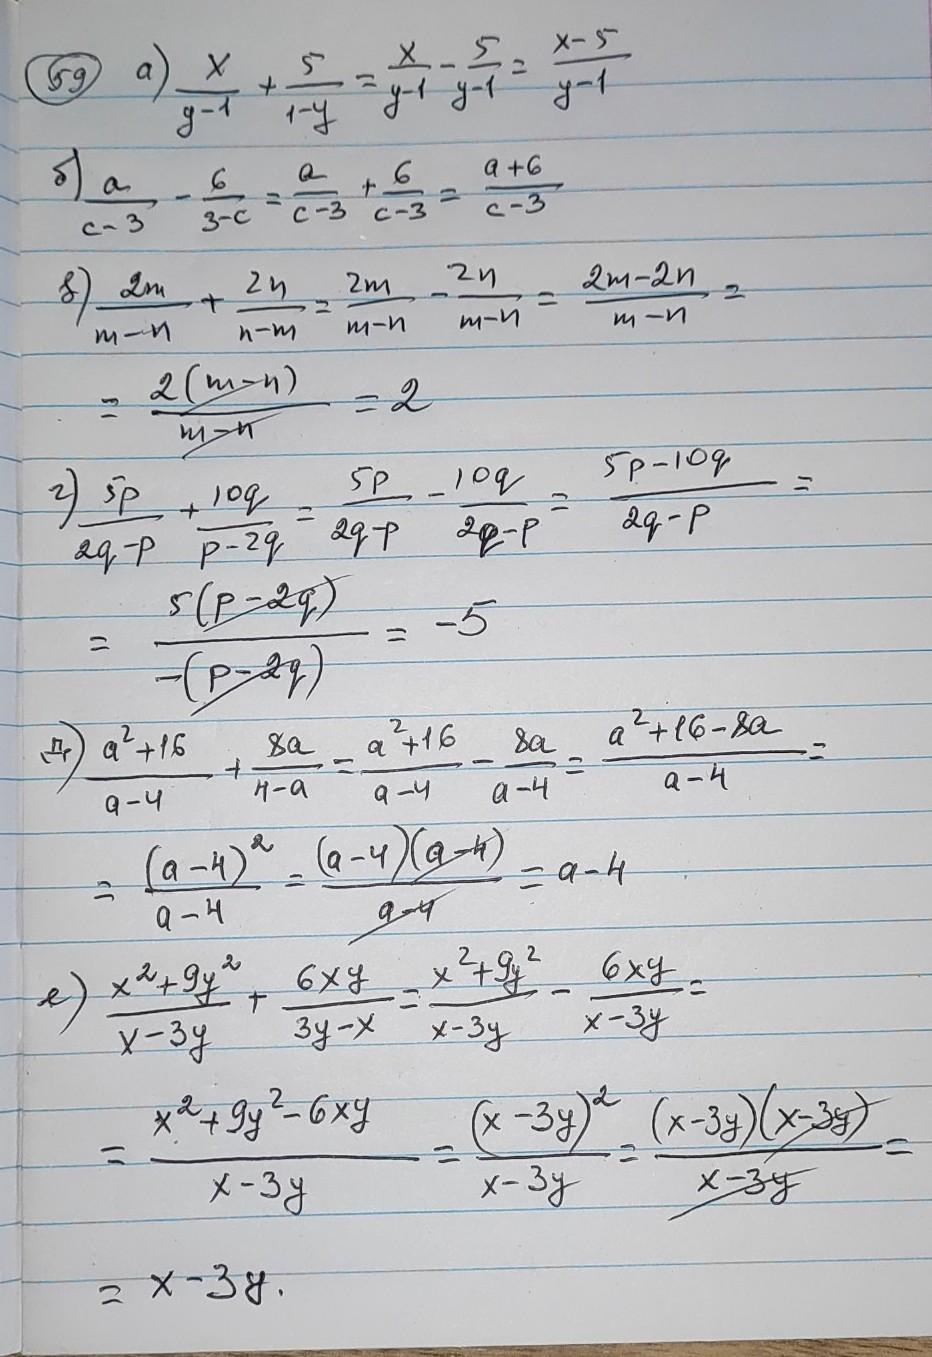 59 а) x/(y-1) + 5/(1-y) = x/(y-1) - 5/(y-1) = (x-5)/(y-1)
б) a/(c-3) - 6/(3-c) = a/(c-3) + 6/(c-3) = (a+6)/(c-3)
в) 2m/(m-n) + 2n/(n-m) = 2m/(m-n) - 2n/(m-n) = (2m-2n)/(m-n) =
= 2(m-n)/(m-n) = 2
г) 5p/(2q-p) + 10q/(p-2q) = 5p/(2q-p) - 10q/(2q-p) = (5p-10q)/(2q-p) =
= 5(p-2q)/(-(p-2q)) = -5
д) (a²+16)/(a-4) + 8a/(4-a) = (a²+16)/(a-4) - 8a/(a-4) = (a²+16-8a)/(a-4) =
= (a-4)²/(a-4) = (a-4)(a-4)/(a-4) = a-4
е) (x²+9y²)/(x-3y) + 6xy/(3y-x) = (x²+9y²)/(x-3y) - 6xy/(x-3y) =
= (x²+9y²-6xy)/(x-3y) = (x-3y)²/(x-3y) = (x-3y)(x-3y)/(x-3y) =
= x-3y.